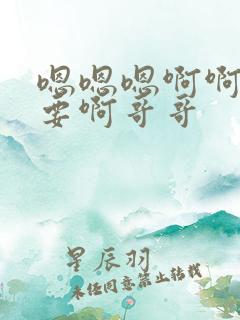 嗯嗯嗯啊啊
要啊哥哥
星辰羽
未经同意禁止转载